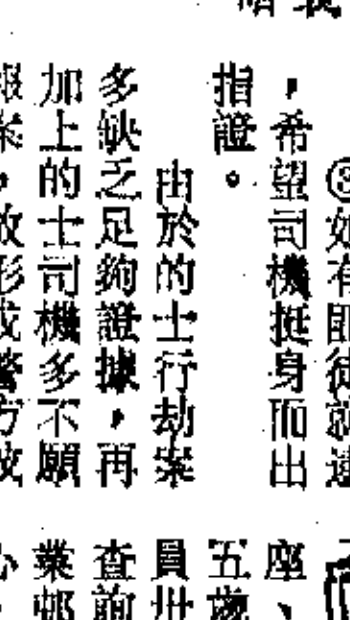 ③如有即
，希望司機挺身而出
指證。
由於的士行劫案
多缺乏足夠證據，再
加上的士司機多不願
報案，故形成警方破
座、
五歲
員卅
查詢
業邨
心